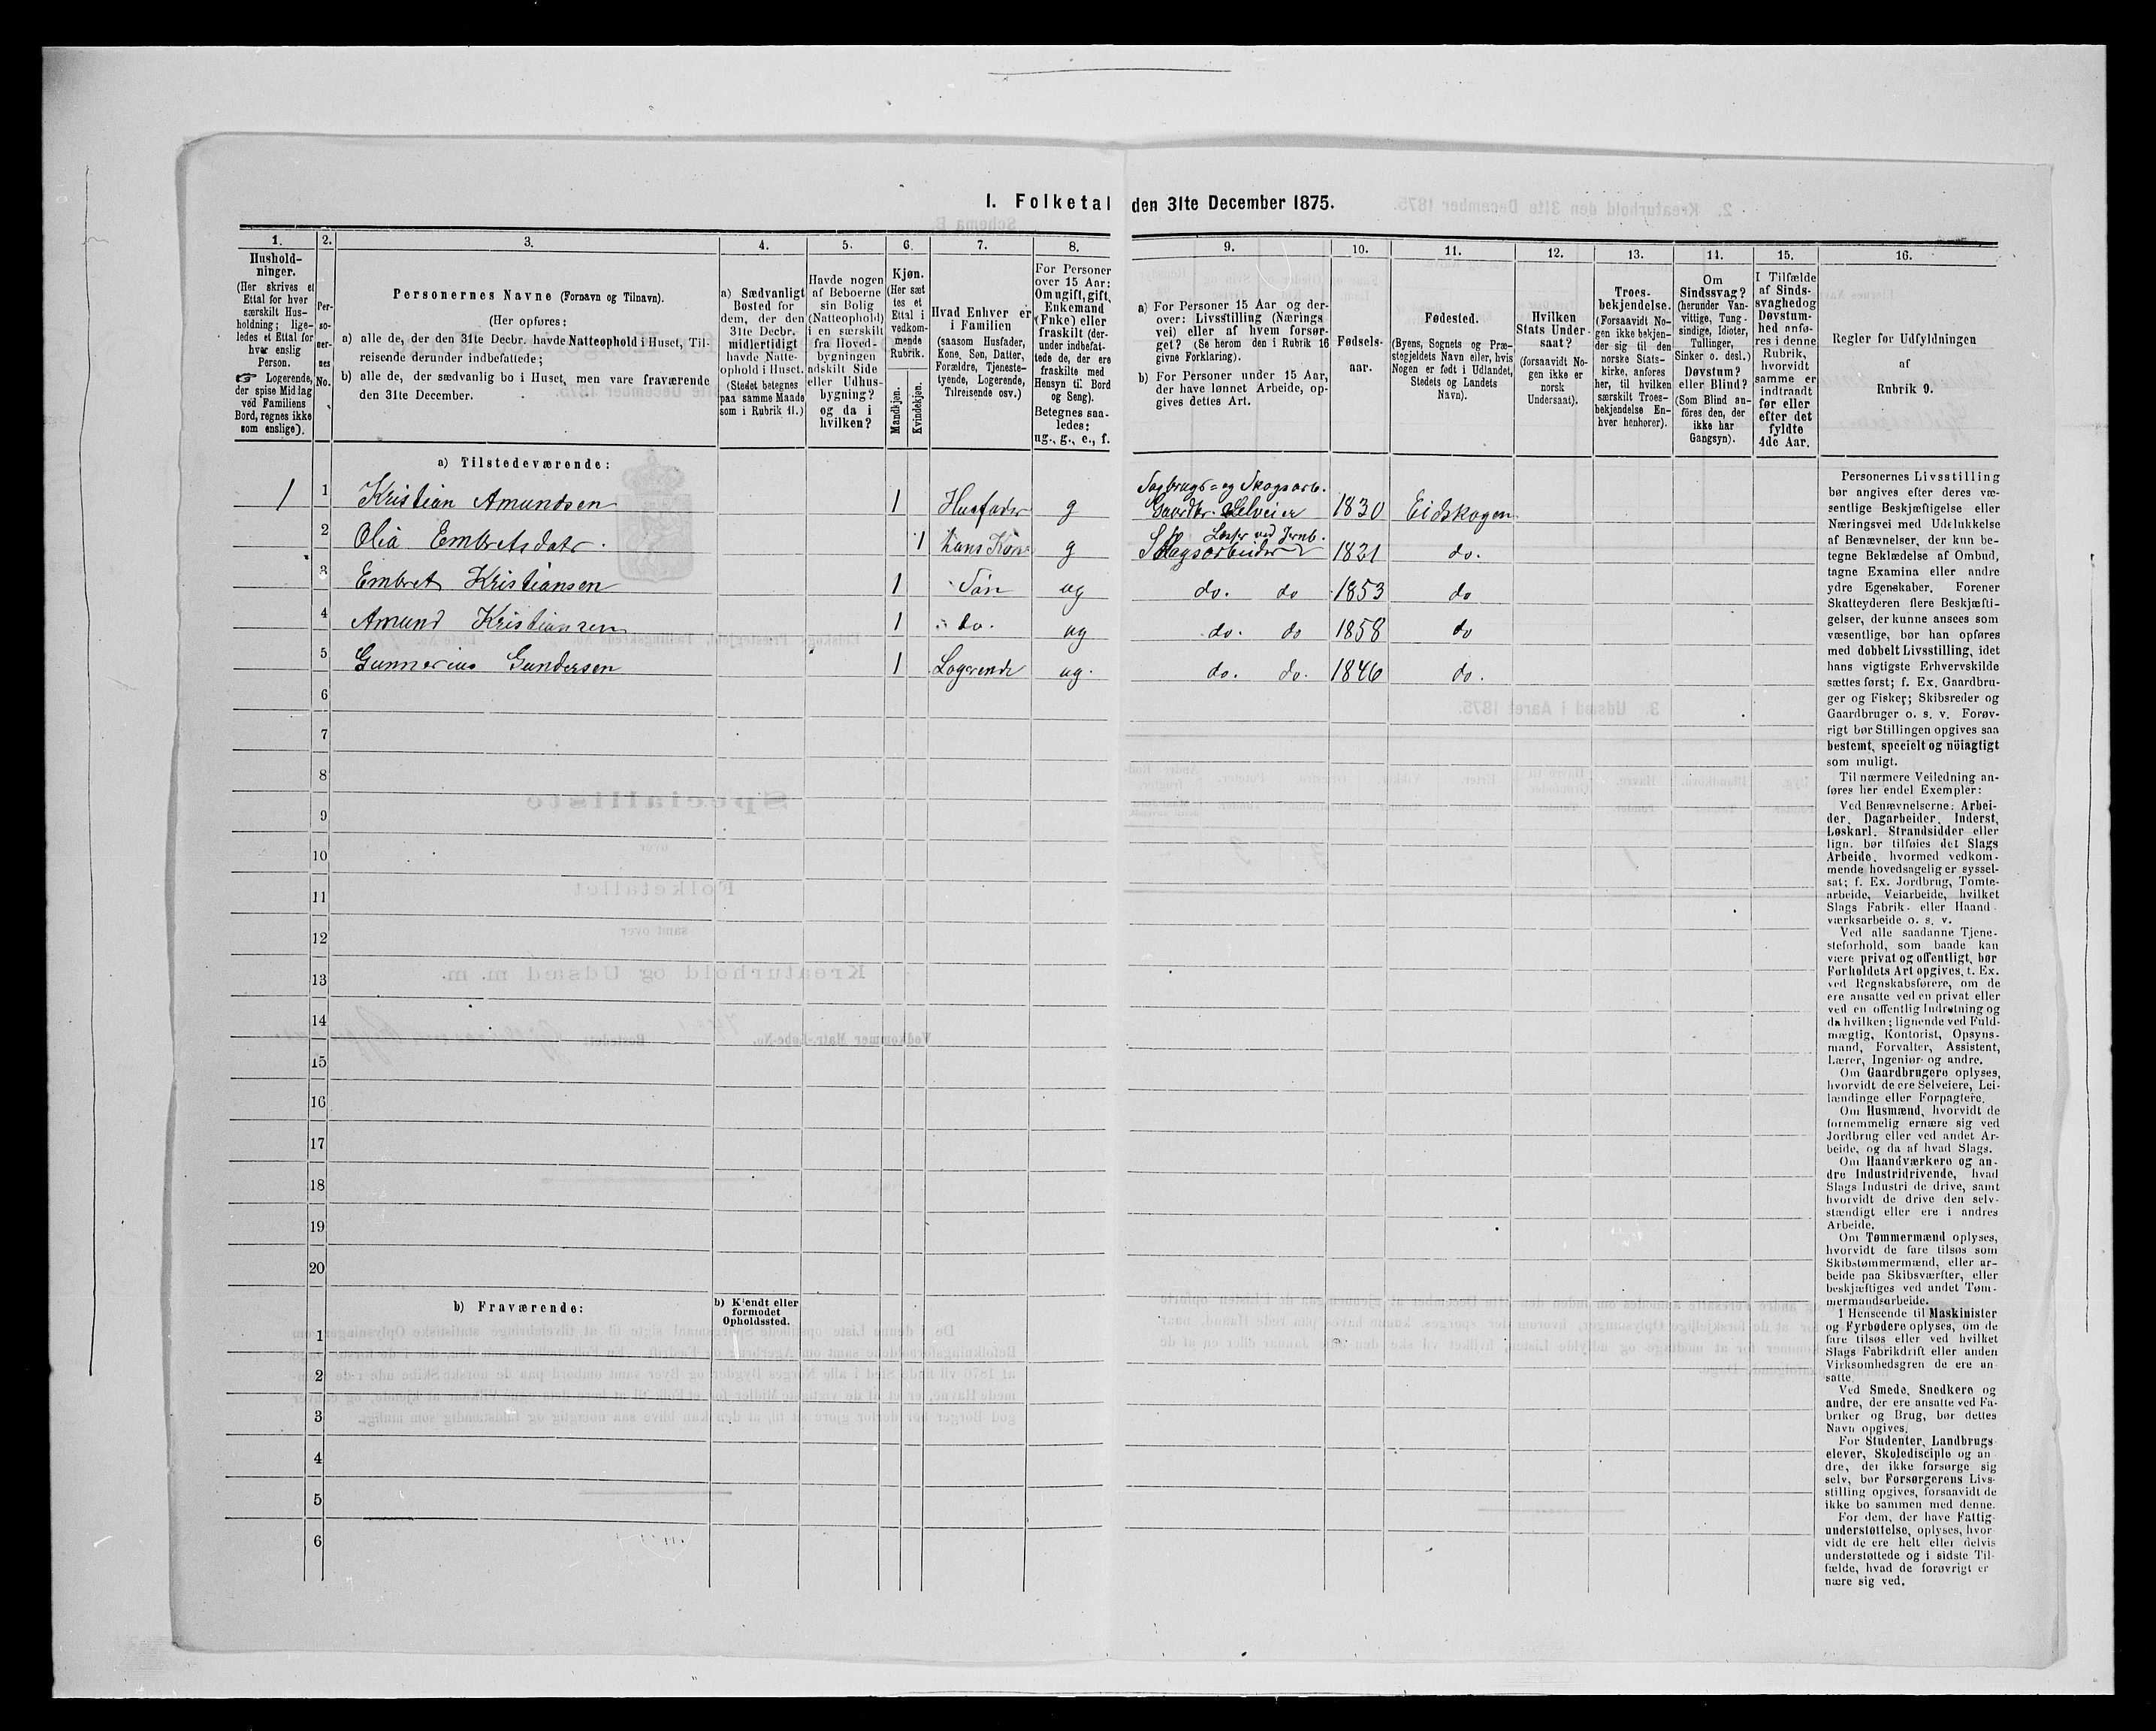 1. Folketal den 31te December 1875.
1.
2.
3.
4.
5.
6.
7.
8.
9.
10.
11.
12.
13.
14.
15.
16.
Hushold-
ninger.
(Her skrives et
Ettal for hver
særskilt Hus-
holdning; lige-
ledes et Ettal for
hver enslig
Person.
☞ Logerende,
der spise Middag
ved Familiens
Bord, regnes ikke
som enslige).
Per-
so-
ner-
nes
No.
Personernes Navne (Fornavn og Tilnavn).
(Her opføres:
a) alle de, der den 31te Decbr. havde Natteophold i Huset, Til-
reisende derunder indbefattede;
b) alle de, der sædvanlig bo i Huset, men vare fraværende
den 31te December.
a) Sædvanligt
Bosted for
dem, der den
31te Decbr.
midlertidigt
havde Natte-
ophold i Huset.
(Stedet betegnes
paa samme Maade
som i Rubrik 11.)
Havde nogen
af Beboerne
sin Bolig
(Natteophold)
i en særskilt
fra Hoved-
bygningen
adskilt Side
eller Udhus-
bygning?
og da i
hvilken?
Kjøn.
(Her sæt
tes et
Ettal i
vedkom-
mende
Rubrik.
Mandkjøn.
Kvindekjøn.
Hvad Enhver er
i Familien
(saasom Husfader,
Kone, Søn, Datter,
Forældre, Tjeneste-
tyende, Logerende,
Tilreisende osv.)
For Personer
over 15 Aar:
Om ugift, gift,
Enkemand
(Enke) eller
fraskilt (der-
under indbefat-
tede de, der ere
fraskilte med
Hensyn til Bord
og Seng).
Betegnes saa-
ledes:
ug., g., e., f.
a) For Personer 15 Aar og der-
over: Livsstilling (Nærings
vei) eller af hvem forsør-
get? (Se herom den i Rubrik 16
givne Forklaring).
b) For Personer under 15 Aar,
der have lønnet Arbeide, op-
gives dettes Art.
Fødsels-
aar.
Fødested.
(Byens, Sognets og Præ-
stegjeldets Navn eller, hvis
Nogen er født i Udlandet,
Stedets og Landets
Navn).
Hvilken
Stats Under-
saat?
(forsaavidt No-
gen ikke er
norsk
Undersaat).
Troes-
bekjendelse.
(Forsaavidt No-
gen ikke bekjen-
der sig til den
norske Stats-
kirke, anføres
her, til hvilken
særskilt Troes-
bekjendelse En-
hver henhører).
Om
Sindssvag?
(herunder Van-
vittige, Tung-
sindige, Idioter,
Tullinger,
Sinker o. desl.)
Døvstum?
eller Blind?
(Som Blind an-
føres den, der
ikke har
Gangsyn).
I Tilfælde
af Sinds-
svaghed og
Døvstum-
hed anfø-
res i denne
Rubrik,
hvorvidt
samme er
indtraadt
før eller
efter det
fyldte
4de Aar.
Regler for Udfyldningen
af
Rubrik 9.
a) Tilstedeværende:
1 1 Kristian Amundsen 1 Husfader g Sagbrugs= og Skogsarb. Gaardbr. Selveier 1830 Eidskogen
2 Olia Embretsdatr. 1 hans Kone g 1821 do.
3 Embret Kristiansen 1 Søn ug do. do 1853 do
4 Amund Kristiansen 1 do. ug do. do 1858 do
5 Gunnerius Gundersen 1 Logerende ug. do. do. 1846 do.
6
7
8
9
10
11
12
13
14
15
16
17
18
19
20
b) Fraværende:
b) Kjendt eller
formodet
Opholdssted.
1
2
3
4
5
6
Personernes Livsstilling
bør angives efter deres væ-
sentlige Beskjæftigelse eller
Næringsvei med Udelukkelse
af Benævnelser, der kun be-
tegne Beklædelse af Ombud,
tagne Examina eller andre
ydre Egenskaber. Forener
Skatteyderen flere Beskjæfti-
gelser, der kunne ansees som
væsentlige, bør han opføres
med dobbelt Livsstilling, idet
hans vigtigste Erhvervskilde
sættes først; f. Ex. Gaardbru-
ger og Fisker; Skibsreder og
Gaardbruger o. s. v. Forøv-
rigt bør Stillingen opgives saa
bestemt, specielt og nöiagtigt
som muligt.
Til nærmere Veiledning an-
føres her endel Exempler:
Ved Benævnelserne: Arbei-
der, Dagarbeider, Inderst,
Løskarl, Strandsidder eller
lign. bør tilføies det Slags
Arbeide, hvormed vedkom-
mende hovedsagelig er syssel-
sat; f. Ex. Jordbrug, Tomte-
arbeide, Veiarbeide, hvilket
Slags Fabrik- eller Haand-
værksarbeide o. s. v.
Ved alle saadanne Tjene-
steforhold, som baade kan
være privat og offentligt, bør
Forholdets Art opgives, t. Ex.
ved Regnskabsførere, om de
ere ansatte ved en privat eller
ved en offentlig Indretning og
da hvilken; lignende ved Fuld-
mægtig, Kontorist, Opsyns-
mand, Forvalter, Assistent,
Lærer, Ingeniør og andre.
Om Gaardbrugere oplyses,
hvorvidt de ere Selveiere, Lei-
lændinge eller Forpagtere.
Om Husmænd, hvorvidt de
fornemmelig ernære sig ved
Jordbrug eller ved andet Ar-
beide, og da af hvad Slags.
Om Haandværkere og an-
dre Industridrivende, hvad
Slags Industri de drive, samt
hvorvidt de drive den selv-
stændigt eller ere i andres
Arbeide.
Om Tømmermænd oplyses,
hvorvidt de fare tilsøs som
Skibstømmermænd, eller ar-
beide paa Skibsværfter, eller
beskjæftiges ved andet Tøm-
mermandsarbeide.
I Henseende til Maskinister
og Fyrbødere oplyses, om de
fare tilsøs eller ved hvilket
Slags Fabrikdrift eller anden
Virksomhedsgren de ere an-
satte.
Ved Smede, Snedkere og
andre, der ere ansatte ved Fa-
briker og Brug, bør dettes
Navn opgives.
For Studenter, Landbrugs-
elever, Skoledisciple og an-
dre, der ikke forsørge sig
selv, bør Forsørgerens Livs-
stilling opgives, forsaavidt de
ikke bo sammen med denne.
For dem, der have Fattig-
understøttelse, oplyses, hvor-
vidt de ere helt eller delvis
understøttede og i sidste Til-
fælde, hvad de forøvrigt er-
nære sig ved.